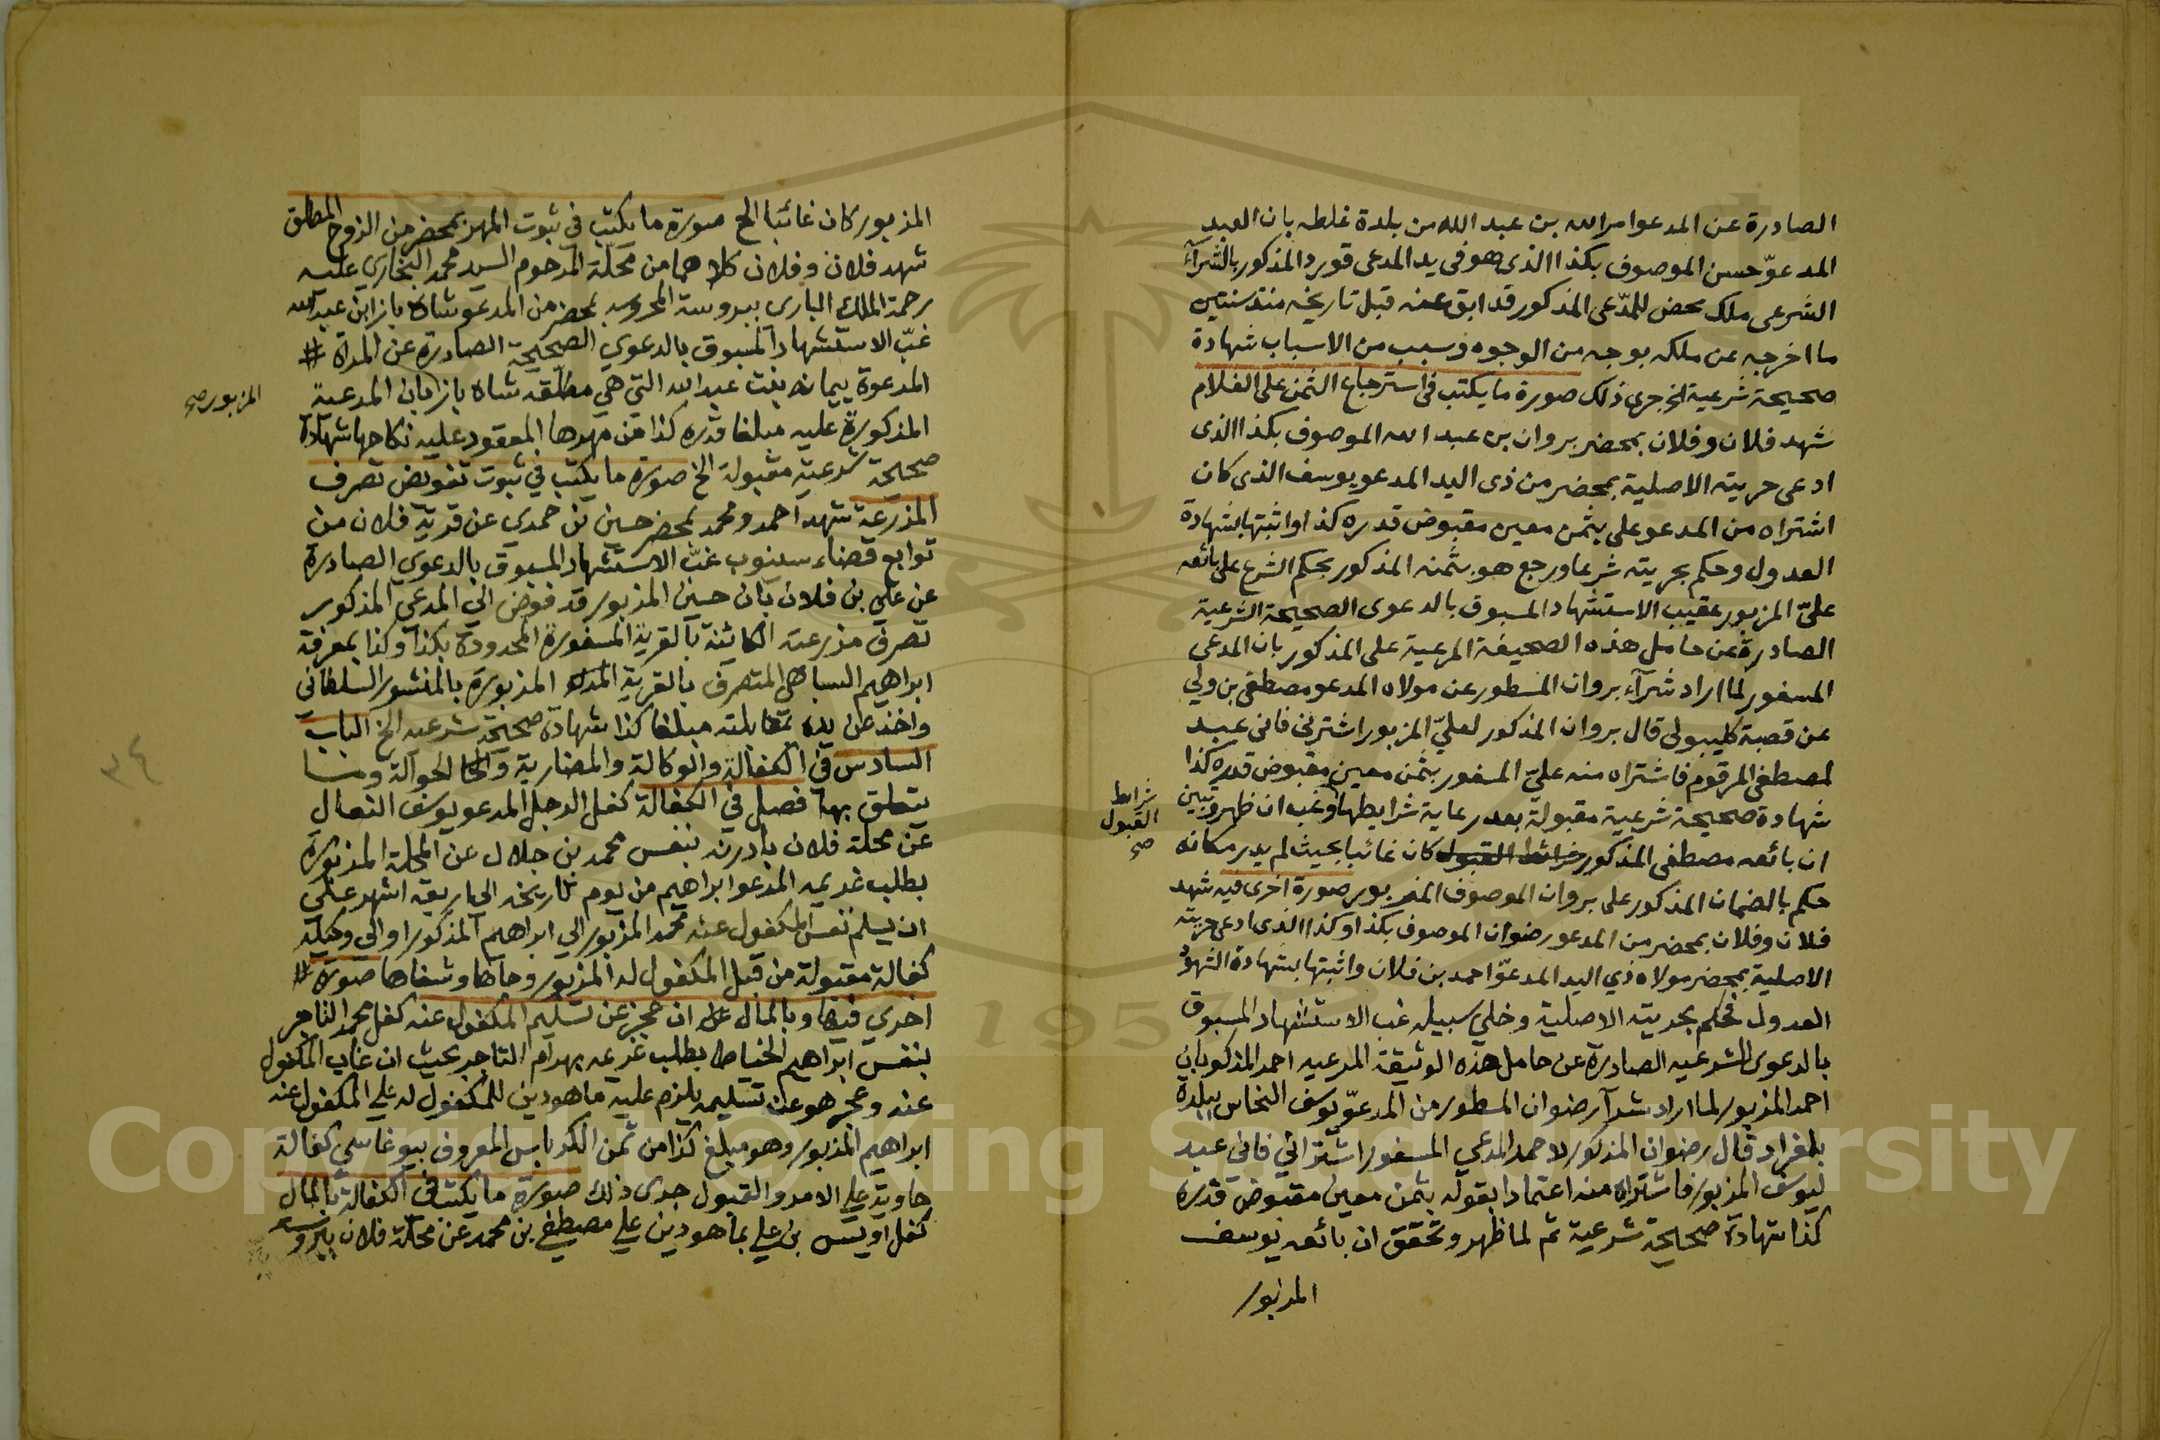 الصادرة عن المدعو امر الله بن عبد الله من بلدة غلطه بان العبد
المدعوّ حسن الموصوف بكذا الذي هو في يد المدعى قورد المذكور بالشرآء
الشرعى ملك محض للمدّعى المذكور قد ابق عنه قبل تاريخه منذ سنتين
ما اخرجه عن ملكه بوجه من الوجوه وسبب من الاسباب شهادة
صحيحة شرعية الخ جرى ذلك صورة ما يكتب فى استرجاع الثمن على الغلام
شهد فلان وفلان بمحضر بروان بن عبد الله الموصوف بكذا الذى
ادعى حريته الاصلية بمحضر من ذى اليد المدعو يوسف الذى كان
اشتراه من المدعو على بثمن معين مقبوض قدره كذا واثبتها بشهادة
العدول وحكم بحريته شرعا ورجع هو بثمنه المذكور بحكم الشرع على بائعه
علىّ المزبور عقيب الاستشهاد المسبوق بالدعوى الصحيحة الشرعية
الصادرة عن حامل هذه الصحيفة المرعية على المذكور بان المدعى
المسفور لما اراد شرآء بروان المسطور عن مولاه المدعو مصطفى بن ولي
عن قصبة كليبولى قال بروان المذكور لعليّ المزبور اشترنى فانى عبد
لمصطفى المرقوم فاشتراه منه عليّ المسفور بثمن معين مقبوض قدره كذا
شهادة صحيحة شرعية مقبولة بعد رعاية شرايطها وغب ان ظهر وتبين
ان بائعه مصطفى المذكور شرائط القبول كان غائبا بحيث لم يدر مكانه
شرايط
القبول
صح
حكم بالضمان المذكور على بروان الموصوف المزبور صورة اخرى فيه شهد
فلان وفلان بمحضر من المدعو رضوان الموصوف بكذا وكذا الذى ادعى حريته
الاصلية بمحضر مولاه ذي اليد المدعوّ احمد بن فلان واثبتها بشهادة الشهود
العدول فحكم بحريته الاصلية وخلي سبيله غب الاستشهاد المسبوق
بالدعوى الشرعيه الصادرة عن حامل هذه الوثيقة المرعيه احمد المذكور بان
احمد المزبور لما اراد شرآ رضوان المسطور من المدعوّ يوسف النخاس ببلدة
بلغراد قال رضوان المذكور لاحمد المدعي المسفور اشترانى فانى عبد
ليوسف المزبور فاشتراه منه اعتمادا بقوله بثمن معين مقبوض قدره
كذا شهادة صحيحة شرعية ثم لما ظهر وتحقق ان بائعه يوسف
المزبور
المزبور كان غائبا الخ صورة ما يكتب في ثبوت المهر بمحضر من الزوج المطلق
شهد فلان وفلان كلاهما من محلة المرحوم السيد محمد البخاري عليه
رحمة الملك البارى ببروسة المحروسه بمحضر من المدعو شاه باز ابن عبد الله
غبّ الاستشهاد المسبوق بالدعوي الصحيحة الصادرة عن المرأة #
المدعوة بيمانه بنت عبد الله التى هي مطلقه شاه باز بان المدعية
المزبور صح
المذكورة عليه مبلغا قدره كذا من مهرها المعقود عليه نكاحها شهادة
صحيحة شرعية مقبولة الخ صورة ما يكتب في ثبوت تفويض تصرف
المزرعة شهد احمد ومحمد بمحضر حسين بن حمدي عن قرية فلان من
توابع قضاء سينوب غبّ الاستشهاد المسبوق بالدعوي الصادرة
عن علي بن فلان بان حسين المزبور قد فوض الي المدعي المذكور
تصرف مزرعته الكائنة بالقرية المسفورة المحدودة بكذا وكذا بمعرفة
ابراهيم السباهى المتصرف بالقرية المزبورة بالمنشور السلطاني
واخذ من يده بمقابلته مبلغا كذا شهادة صحيحة شرعيه الخ الباب
السادس في الكفالة والوكالة والمضاربة والحوالة وما
يتعلق بها فصل في الكفالة كفل الرجل المدعو يوسف النعال
عن محلة فلان بادرنه بنفس محمد بن جلال عن المحلة المزبورة
بطلب غريمه المدعو ابراهيم من يوم تاريخه الى اربعة اشهر على
ان يسلم نفس المكفول عنه محمد المزبور الي ابراهيم المذكور او الي وكيله
كفالة مقبولة من قبل المكفول له المزبور وجاها وشفاها صورة #
اخري فيها وبالمال على ان عجز عن تسليم المكفول عنه كفل محمد التاجر
بنفس ابراهيم الخياط بطلب غريمه بهرام التاجر بحيث ان غاب المكفول
عنه وعجز هو عن تسليمه يلزم عليه ما هو دين للمكفول له علي المكفول عنه
ابراهيم المزبور وهو مبلغ كذا من ثمن الكرباس المعروف ببوغاسي كفالة
حاوية علي الامر والقبول جرى ذلك صورة ما يكتب فى الكفالة بالمال
كفل اويس بن علي بما هو دين علي مصطفي بن محمد عن محلة فلان ببروسه
٣٤